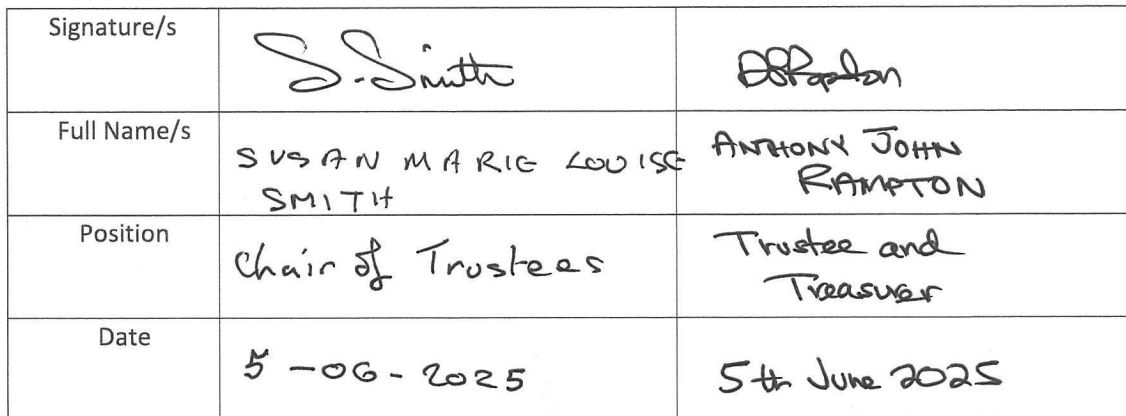 Signature/s
S. Smith
Full Name/s
SUSAN MARIE LOUISE
SMITH
ANTHONY JOHN
RAMPTON
Position
Chair of Trustees
Trustee and
Treasurer
Date
5-06-2025
5th June 2025